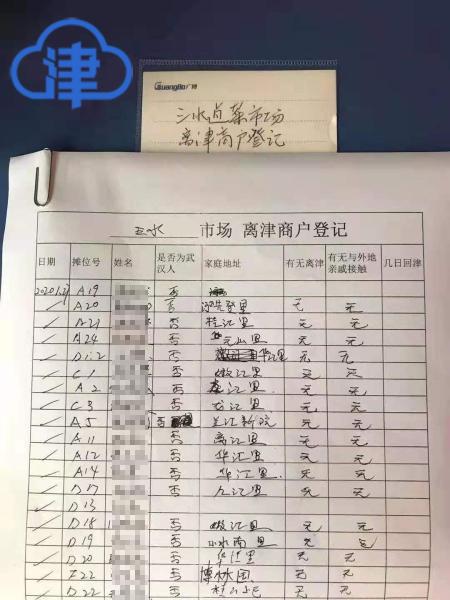 津
GuangBo广博
三水道菜市场
离津商户登记
三水 市场 离津商户登记
日期 摊位号 姓名 是否为武汉人 家庭地址 有无离津 有无与外地亲戚接触 几日回津
2020.1.31 A19 否
A20 否 里 无 无
A21 否 桂江里 无 无
A24 否 元山里 无 无
D1.2 否 华江里 无 无
C1 否 微江里 无 无
A2 否 江里 无 无
C3 否 龙江里 无 无
A5 否 新院 无 无
A11 否 离江里 无 无
A12 否 华江里 无 无
A14 否 华江里 无 无
D17 否 九江里 无 无
D13
D18 否 微江里 无 无
D19 否 小水南里 无
D20 否 华江里 无 无
E22 否 博林园 无 无
D22 否 无 无